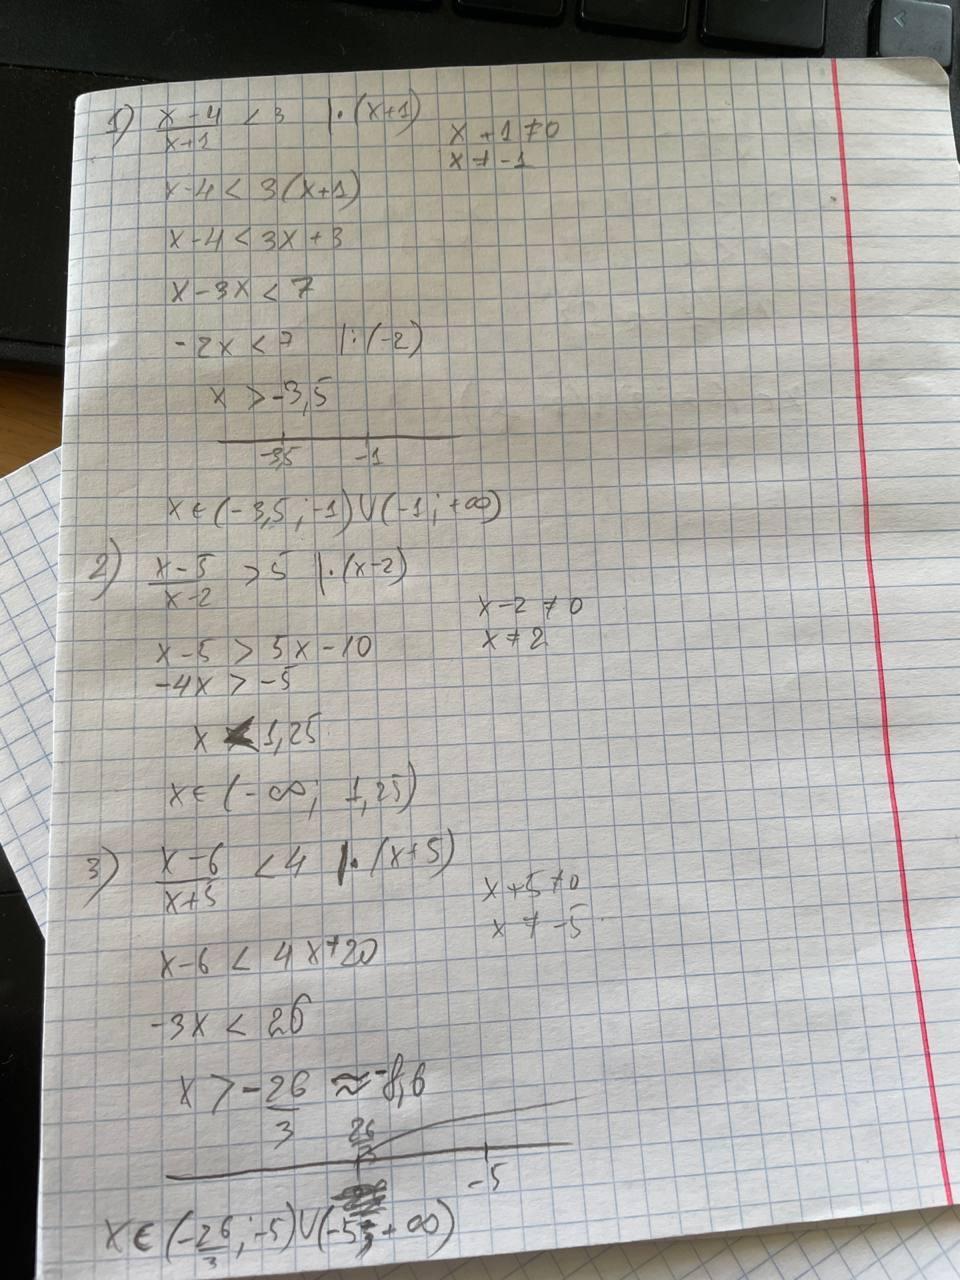 1) x-4/x+1 < 3 |·(x+1)
x+1≠0
x≠-1
x-4 < 3(x+1)
x-4 < 3x+3
x-3x < 7
-2x < 7 |:(-2)
x > -3,5
-3,5 -1
x∈(-3,5; -1)∪(-1; +∞)
2) x-5/x-2 > 5 |·(x-2)
x-2≠0
x≠2
x-5 > 5x-10
-4x > -5
x < 1,25
x∈(-∞; 1,25)
3) x-6/x+5 < 4 |·(x+5)
x+5≠0
x≠-5
x-6 < 4x+20
-3x < 26
x > -26/3 ≈ -8,6
26/3
-5
x∈(-26/3; -5)∪(-5; +∞)